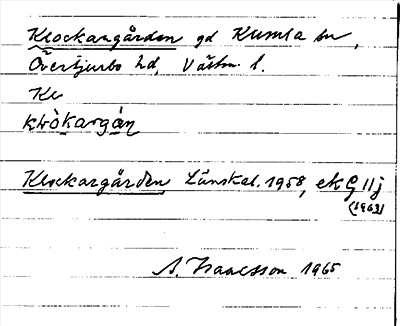 Klockargården gd Kumla sn,
Övertjurbo hd, Västm. l.
Kl
klòkargàṇ
Klockargården Länskal. 1958, ekG 11j
(1963)
A. Isaacsson 1965